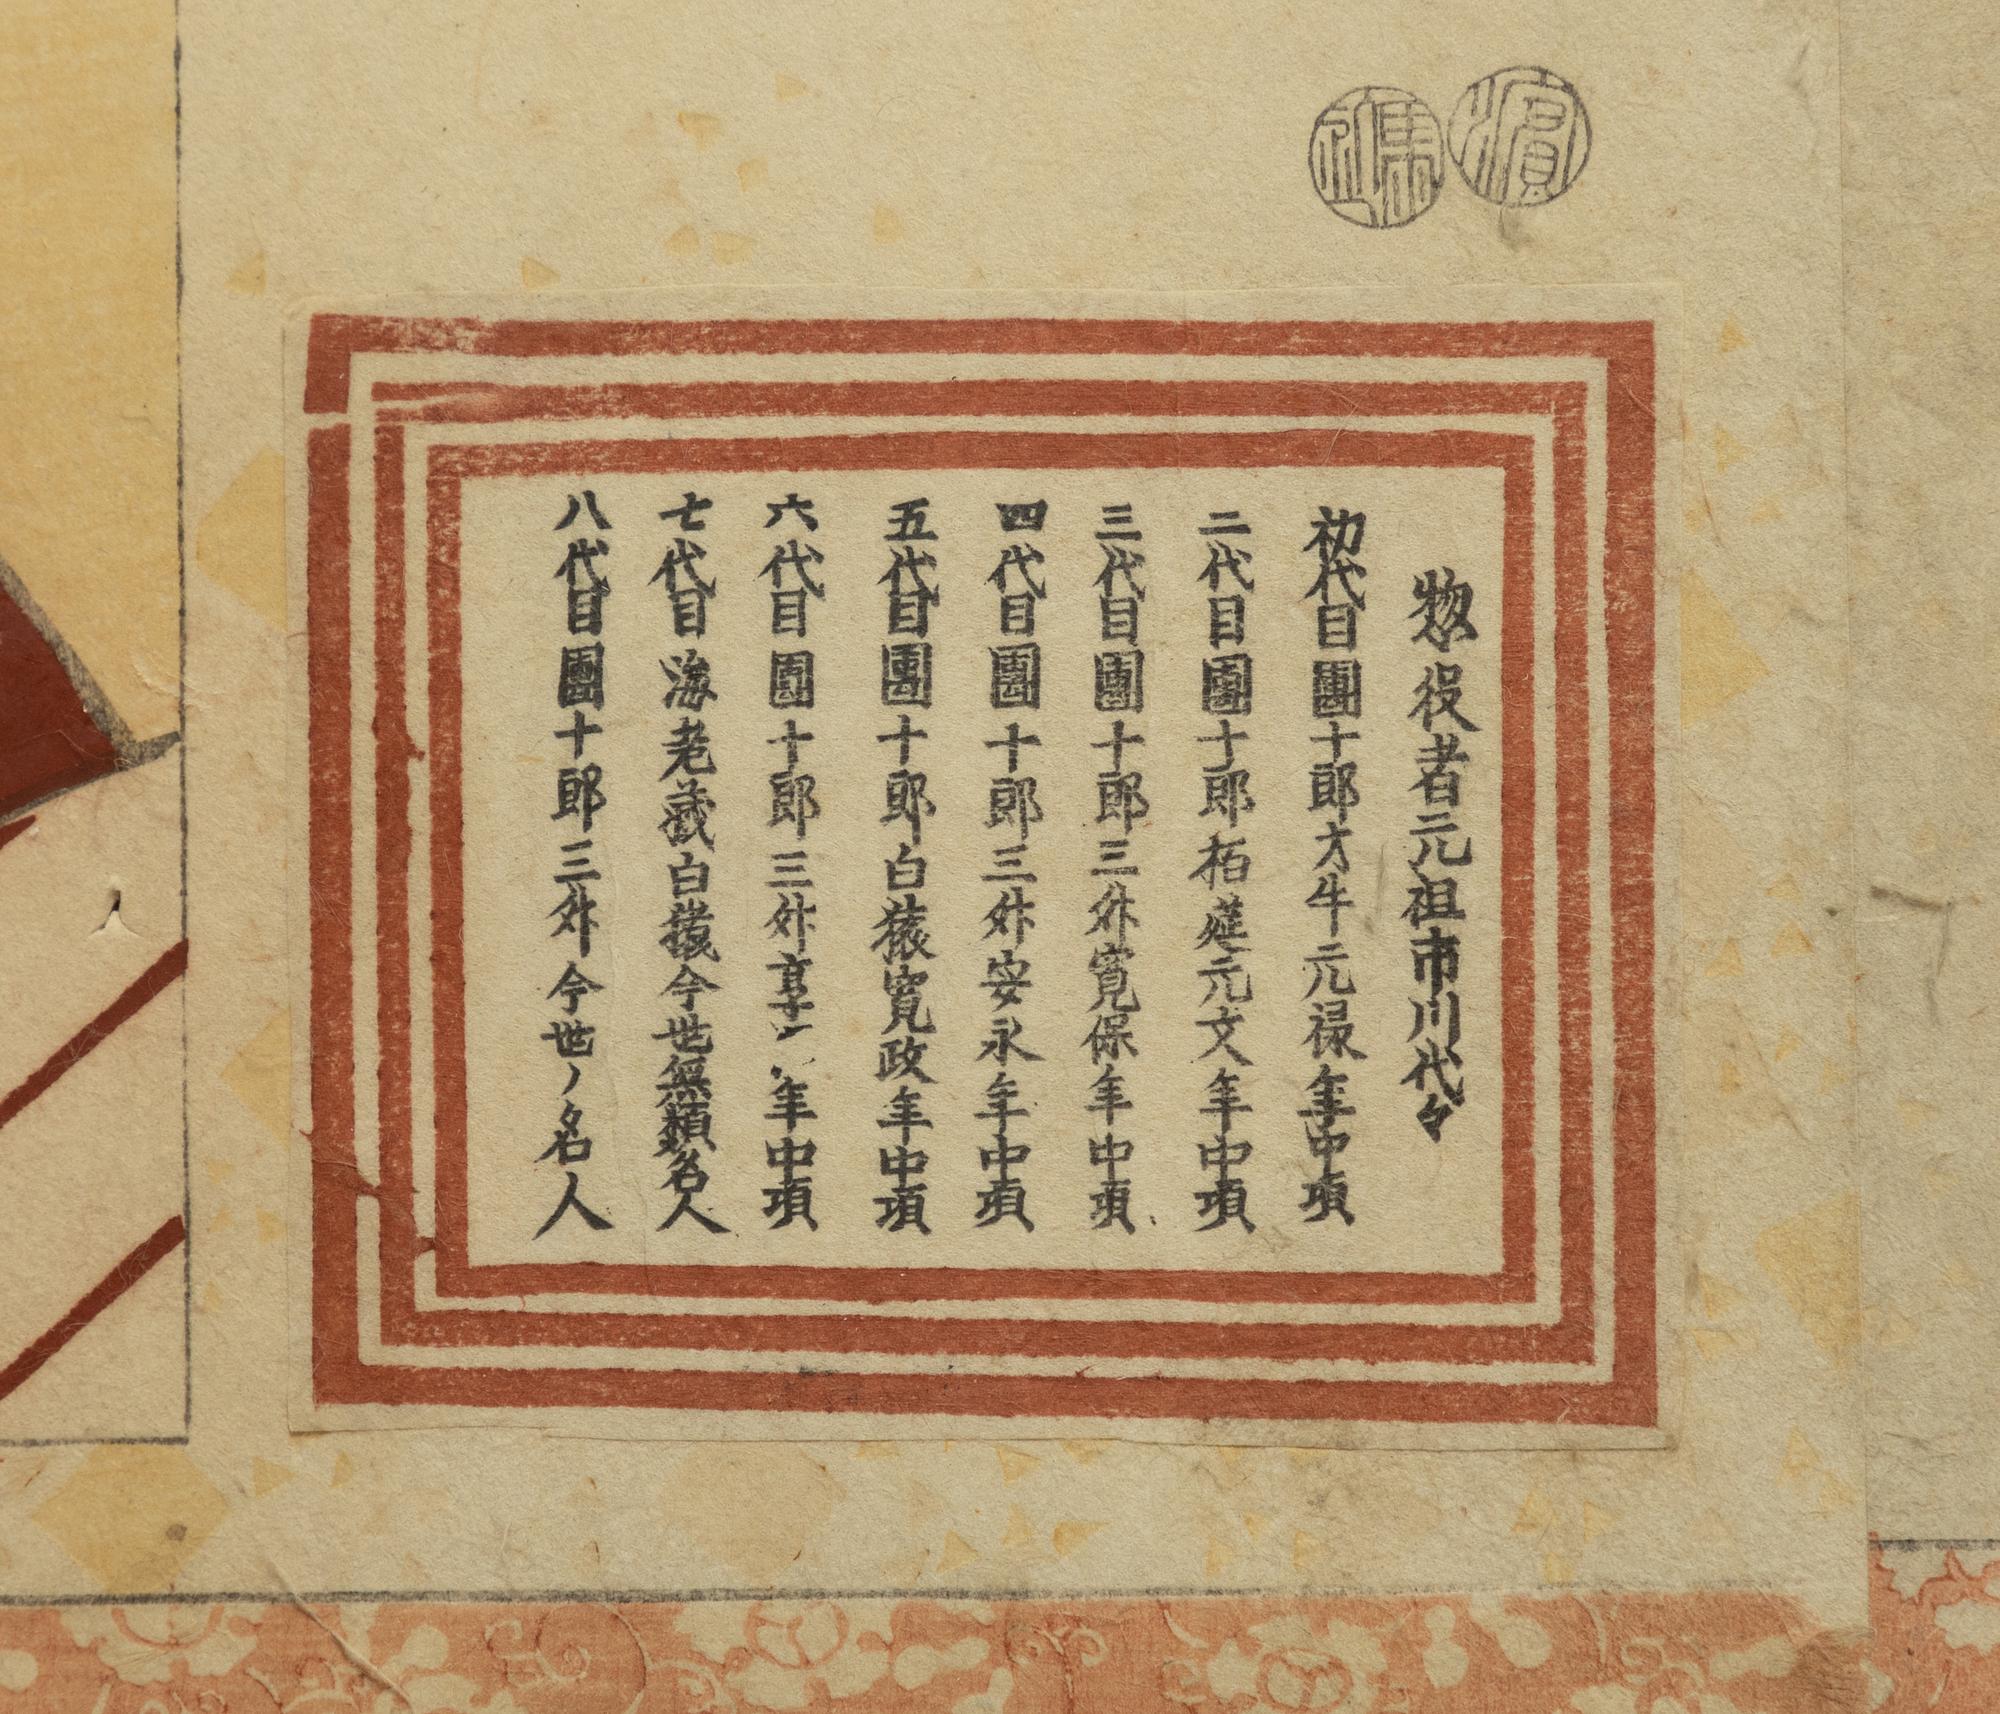 濱
馬込
惣役者元祖市川代々
初代目團十郎才牛元禄年中項
二代目團十郎栢莚元文年中項
三代目團十郎三舛寛保年中項
四代目團十郎三舛安永年中項
五代目團十郎白猿寛政年中項
六代目團十郎三舛享年中項
七代目海老蔵白猿今世無類名人
八代目團十郎三舛今世ノ名人